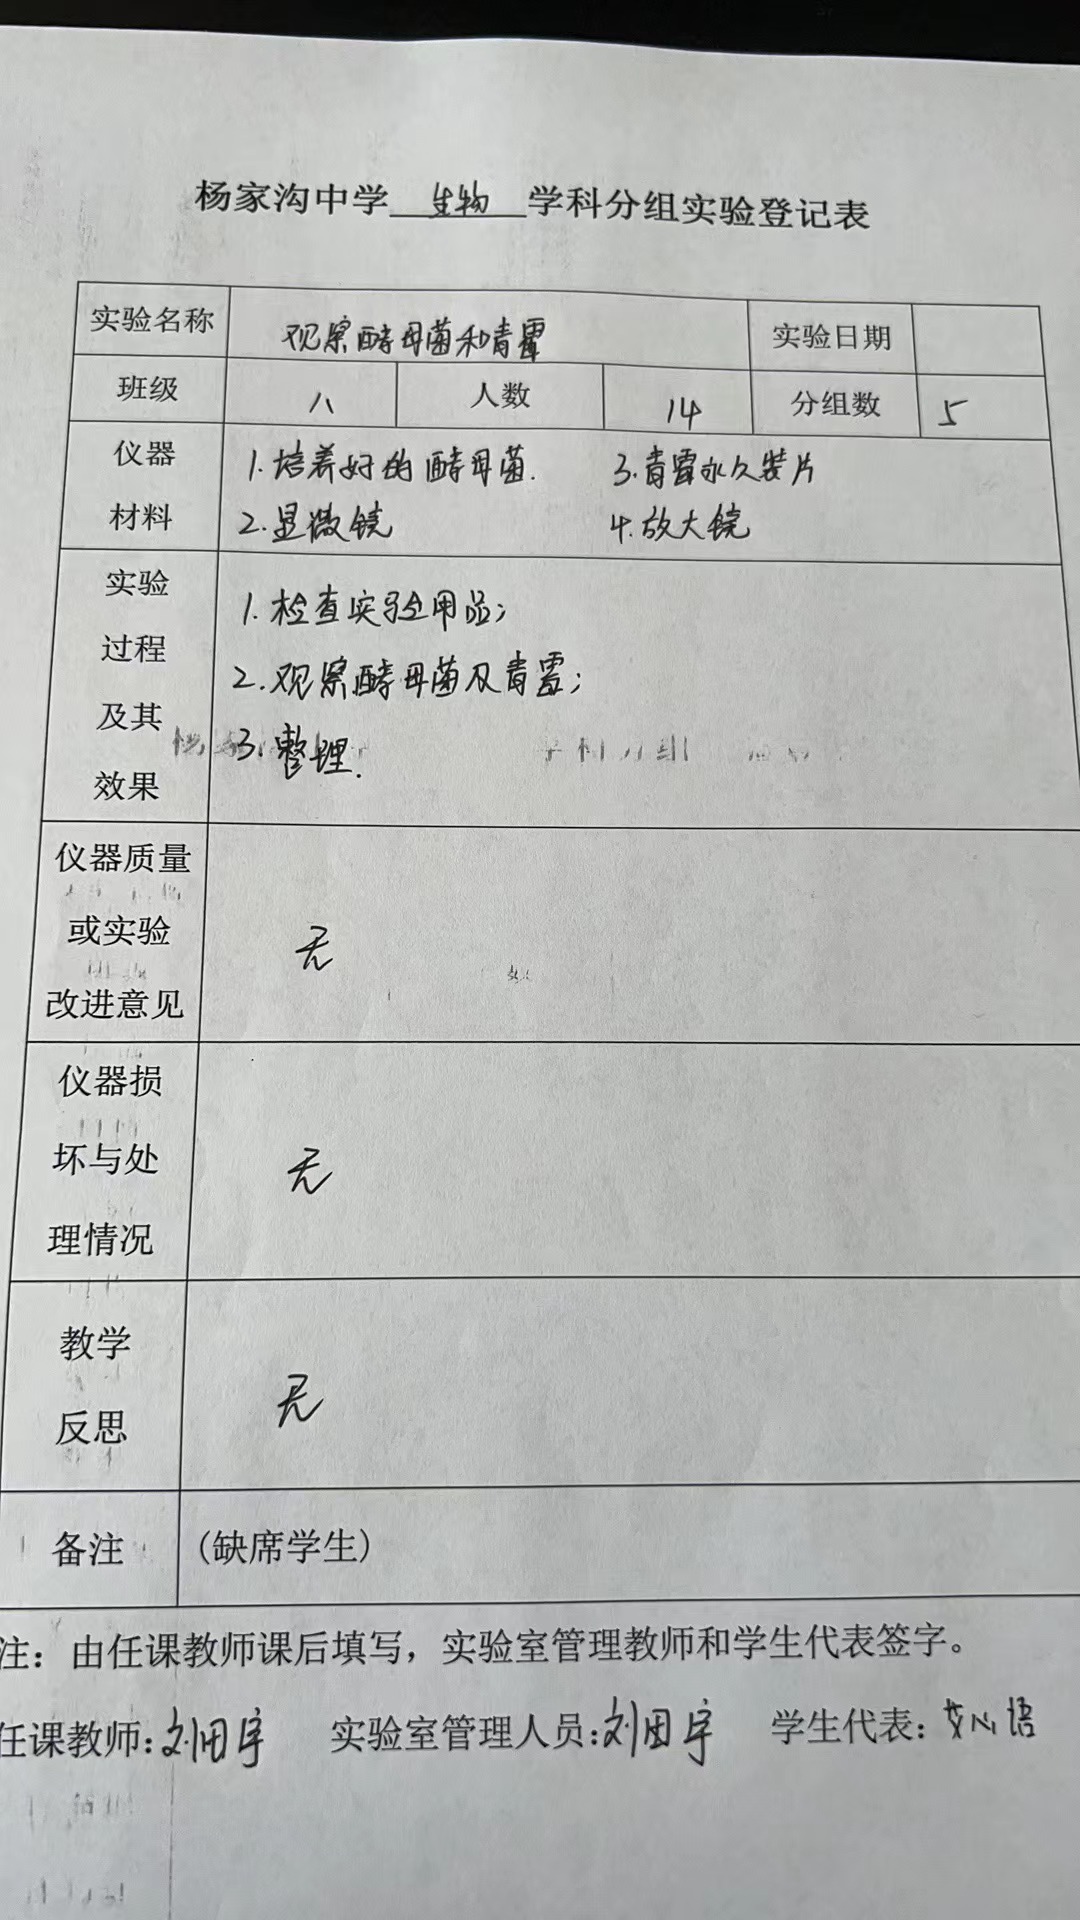 杨家沟中学 生物 学科分组实验登记表
实验名称 观察酵母菌和青霉 实验日期
班级 八 人数 14 分组数 5
仪器材料
1.培养好的酵母菌. 3.青霉永久装片
2.显微镜 4.放大镜
实验过程及其效果
1.检查实验用品;
2.观察酵母菌及青霉;
3.整理.
仪器质量或实验改进意见
无
仪器损坏与处理情况
无
教学反思
无
备注 (缺席学生)
注：由任课教师课后填写，实验室管理教师和学生代表签字。
任课教师:刘田宇 实验室管理人员:刘田宇 学生代表:艾心语